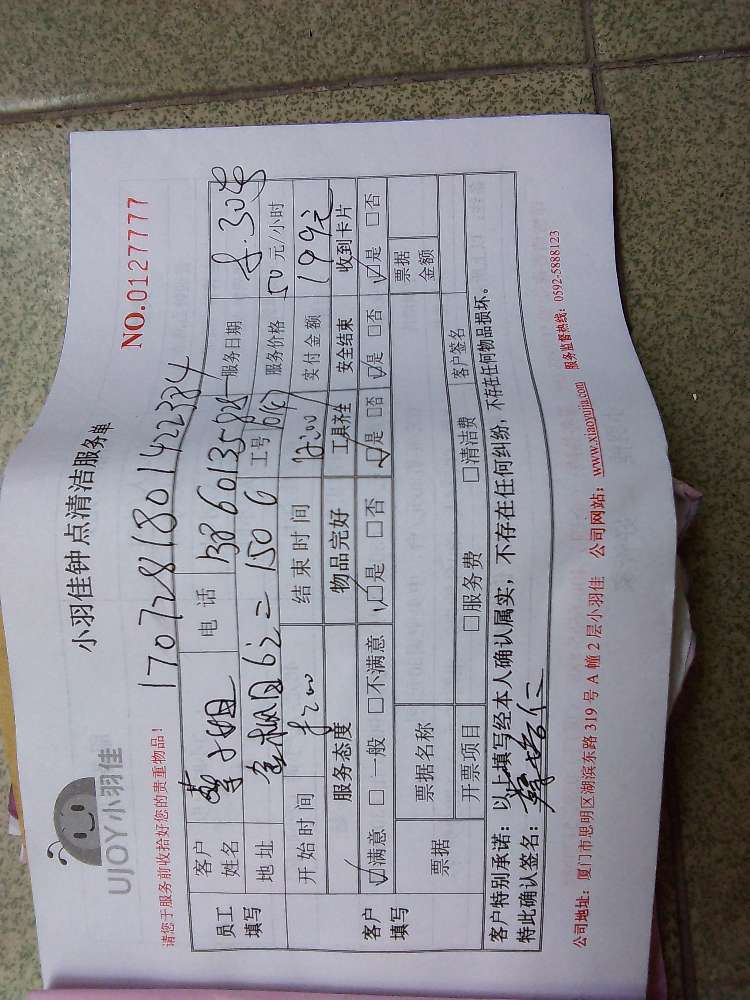 UJOY小羽佳
小羽佳钟点清洁服务单
NO.0127777
请您于服务前收拾好您的贵重物品!
1707281801422384
员工填写
客户姓名 小姐 电话 服务日期 8.30
地址 150 工号 服务价格 50元/小时
开始时间 结束时间 12:00 实付金额 199元
客户填写
服务态度 物品完好 工具齐全 安全结束 收到卡片
☑满意 □一般 □不满意 ☑是 □否 ☑是 □否 ☑是 □否 ☑是 □否
票据 票据名称 票据金额
开票项目 □服务费 □清洁费 客户签名
客户特别承诺:以上填写经本人确认属实,不存在任何纠纷,不存在任何物品损坏。
特此确认签名:
公司地址:厦门市思明区湖滨东路319号A幢2层小羽佳 公司网站:www.xiaoyujia.com 服务监督热线:0592-5888123